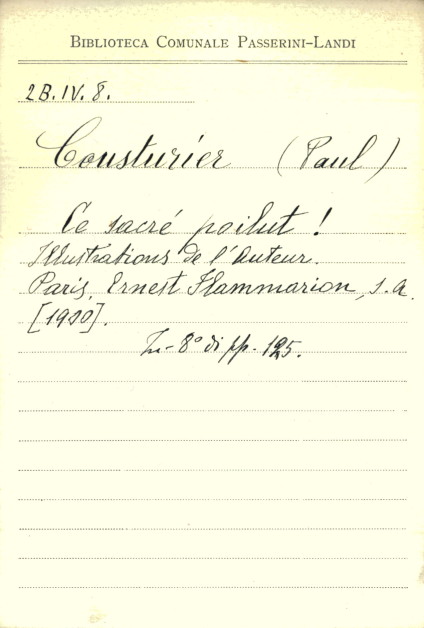 BIBLIOTECA COMUNALE PASSERINI-LANDI
2B.IV.8.
Cousturier (Paul)
Ce sacré poilut !
Illustrations de l'auteur.
Paris, Ernest Flammarion, s.a.
[1910].
In-8° di pp. 125.